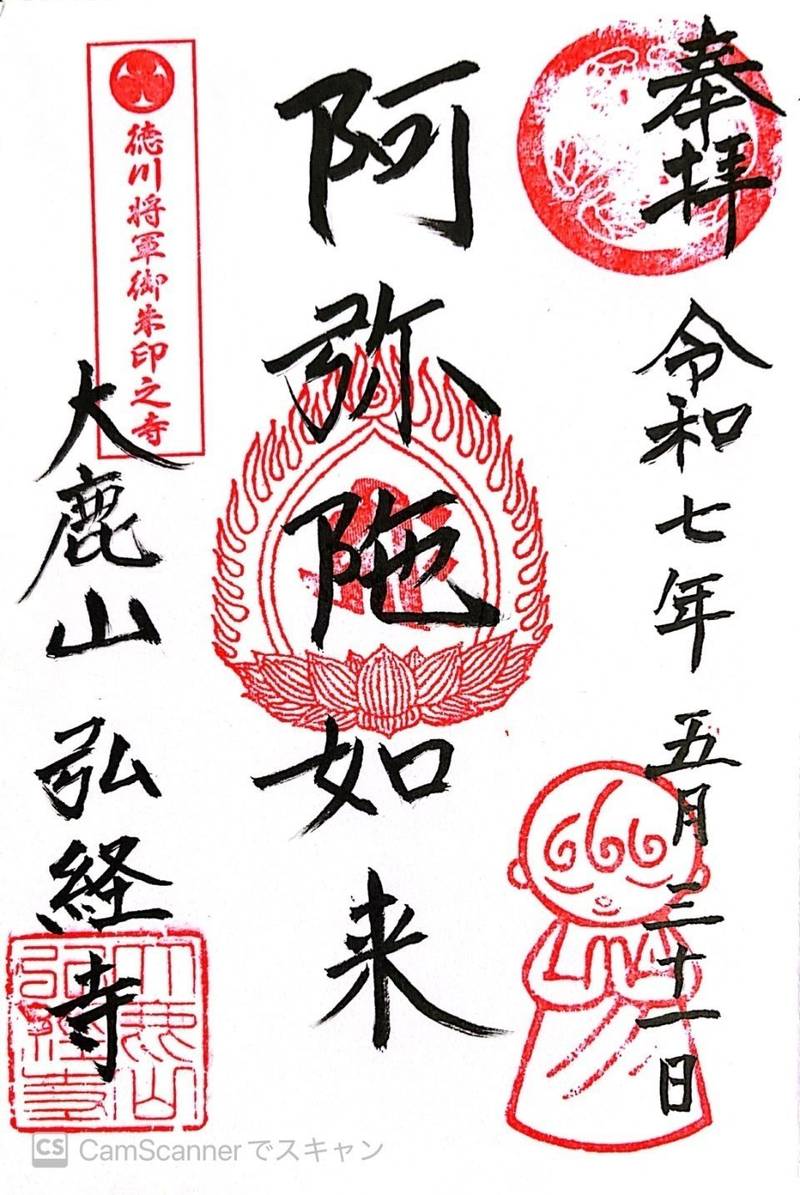 奉拝
令和七年 五月 三十一日
阿弥陀如来
徳川将軍御朱印之寺
大鹿山 弘経寺
大鹿山
弘経寺
CS CamScannerでスキャン